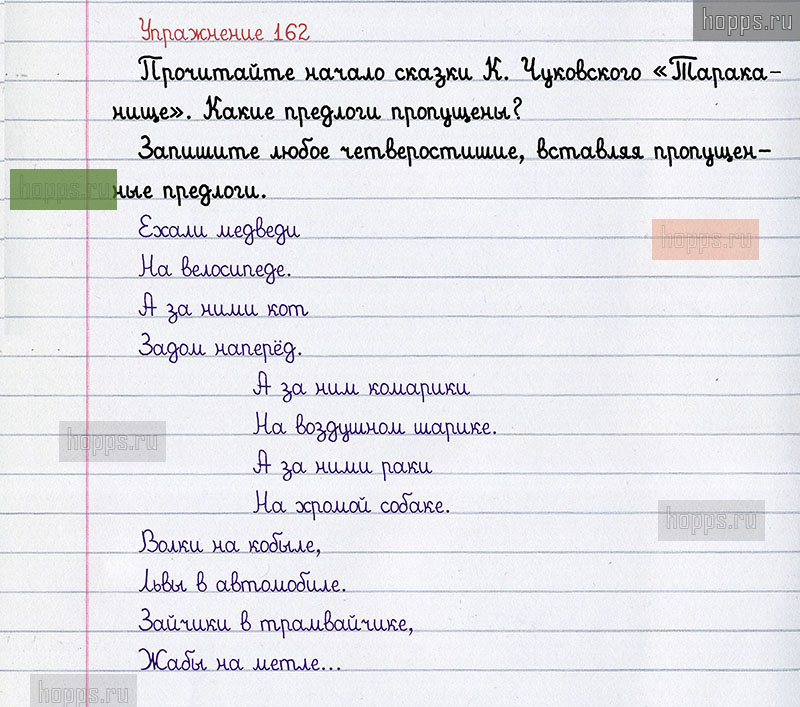 hopps.ru
Упражнение 162
Прочитайте начало сказки К. Чуковского «Тарака-
нище». Какие предлоги пропущены?
Запишите любое четверостишие, вставляя пропущен-
hopps.ru
ные предлоги.
Ехали медведи
hopps.ru
На велосипеде.
А за ними кот
Задом наперёд.
А за ним комарики
На воздушном шарике.
hopps.ru
А за ними раки
На хромой собаке.
hopps.ru
Волки на кобыле,
Львы в автомобиле.
Зайчики в трамвайчике,
Жабы на метле...
hopps.ru